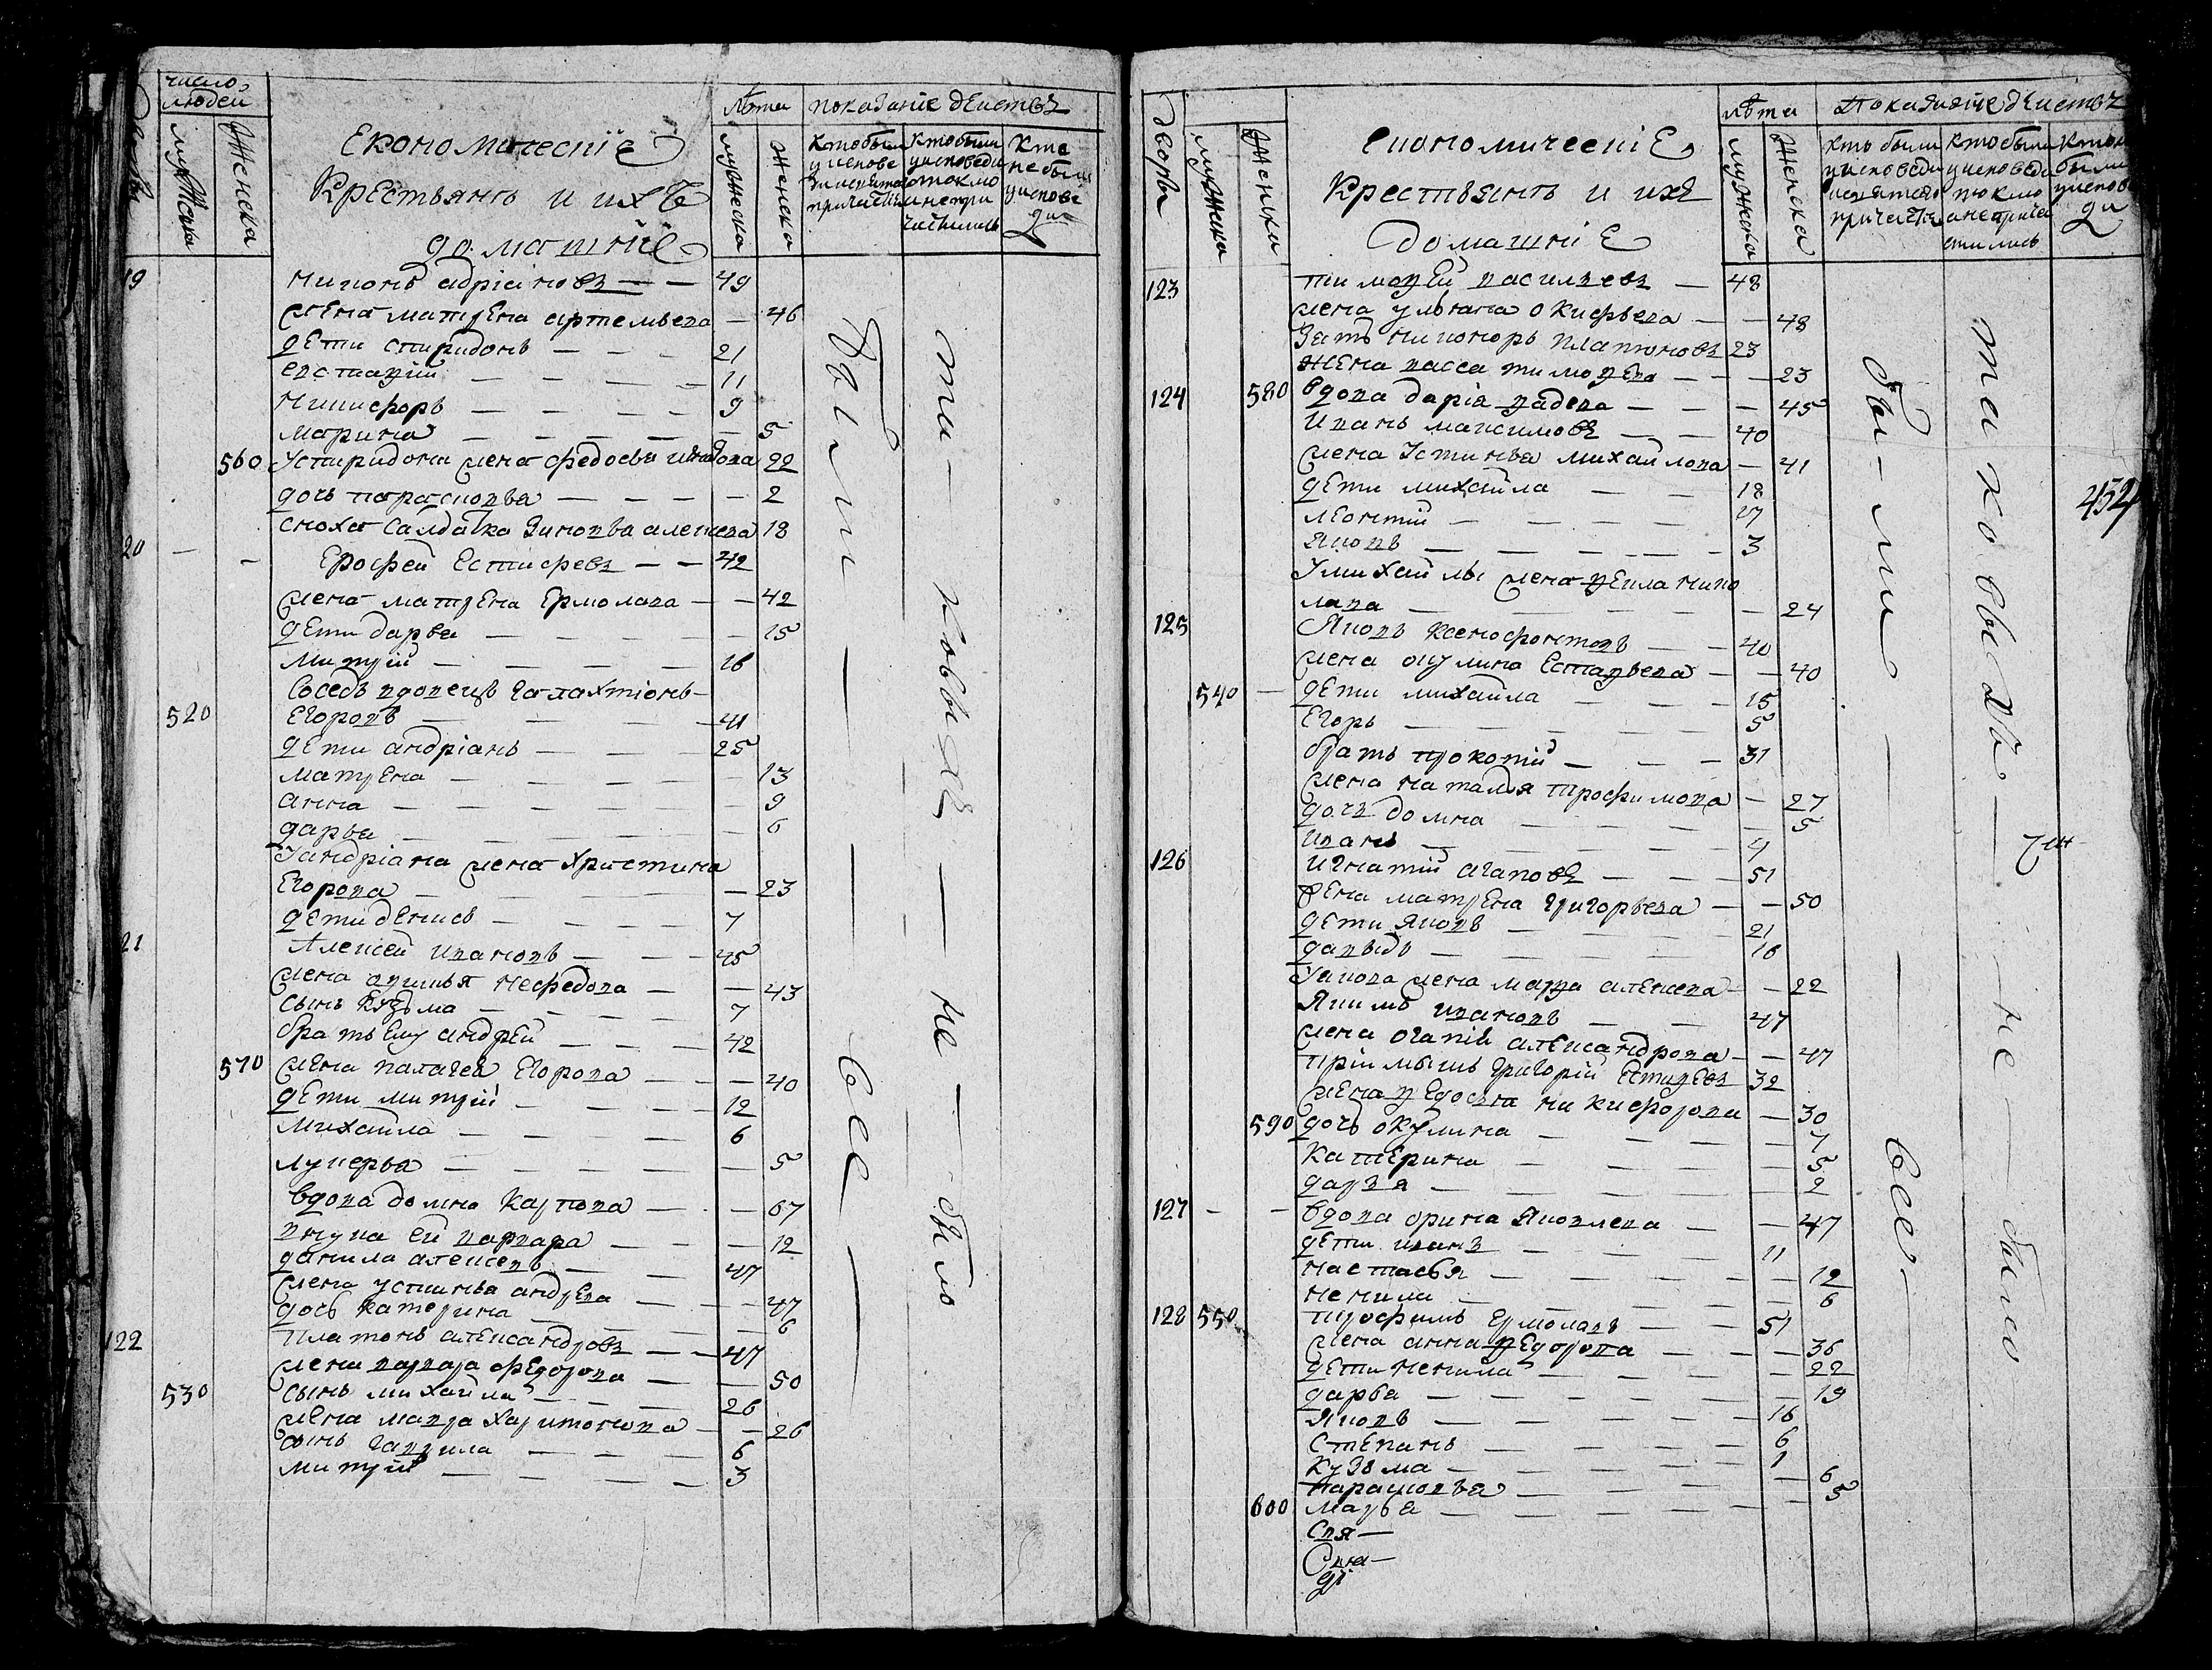 число людей
лѣта показание действъ
дворы мужеска женска
Економическіе
Крестьянъ и ихъ
домашніе
мужеска женска
кто были у исповеди и святаго причастия
кто были у исповеди токмо и не причастились
кто не были у исповеди
19 Никонъ адріановъ — — 49
жена матрена артемьева — 46
дети спиридонъ — — — 21
евстафий — — — — 11
Никифоръ — — — — 9
марина — — — — — 5
560 У спиридона жена федосья 22
дочь парасковья — — — — 2
сноха салдатка Зиновья алексева 18
20 — - Ерофей Естифеевъ — — 42
жена матрена Ермолаева — — 42
дети дарья — — — — 15
митрий — — — — 16
Соседъ вдовецъ Галахтіонъ —
520 Егоровъ — — — — 41
дети андріанъ — — — 25
матрена — — — — — 13
анна — — — — — 9
дарья — — — — — 6
У андріана жена Христина
Егорова — — — — — 23
дети денисъ — — — 7
21 Алексей Ивановъ — — — 45
жена акулинья нефедова — — 43
сынъ Кузьма — — — — 7
братъ Ему андрей — — — 42
570 жена палагея Егорова — — — 40
дети митрий — — — — 12
Михайла — — — — 6
лукерья — — — — — 5
Вдова домна Карпова — — 67
внука ей варвара — — — 12
данила алексевъ — — 47
жена устинья андрева — — — 47
дочь катерина — — — — 6
122 Платонъ александровъ — — 47
жена варвара федорова — — 50
530 сынъ михайла — — — 26
жена мавра Харитонова — — 26
сынъ гаврила — — — 6
митрий — — — — 3
были — — — все —
таковыхъ — не — было
дворы мужеска женска
лѣта Показание действъ
Економическіе
Крестьянъ и ихъ
домашніе
мужеска женска
кто были у исповеди и святаго причастъ
кто были у исповеди токмо а не причастились
кто не были у исповеди
452
123 тимофей васильевъ — 48
жена ульяна окифьева — — 48
Зять никоноръ платоновъ 23
жена васса тимофева — — — 23
124 580 Вдова дарія фадева — — — 45
Иванъ максимовъ — — 40
жена Устинья михайлова — 41
дети михайла — — 18
леонтій — — — — 17
Яковъ — — — — — 3
У михайлы жена неила нико
лаева — — — — — 24
125 Яковъ Ксенофонтовъ — — 40
жена акулина Естафьева — — 40
540 — дети михайла — — — 15
Егоръ — — — — 5
братъ прокопій — — — 31
жена наталья трофимова — 27
дочь домна — — — — 5
иванъ — — — — — 4
126 Игнатий агаповъ — — — 51
жена матрена григорьева — — 50
дети Яковъ — — — — 21
давыдъ — — — — — 16
У якова жена марфа алексева — — 22
Якимъ ивановъ — — 47
жена агапия александрова — — 47
пріимышъ григорій Естифеевъ 32
жена федосья никифорова — 30
590 дочь окулина — — — — 7
катерина — — — — 5
дарья — — — — — 2
127 - — Вдова орина Яковлева — — 47
дети иванъ — — — 11
настасья — — — — — 12
ненила — — — — — 6
128 550 трофимъ Ермолаевъ — — 51
жена анна федорова — — — 36
дети ненила — — — — 22
дарья — — — — — 19
Яковъ — — — — — 16
Степанъ — — — — 6
Кузьма — — — — — 1
Парасковья — — — — 6
600 марья — — — — — 5
Свя —
щен —
были — — все —
таковыхъ — не — было